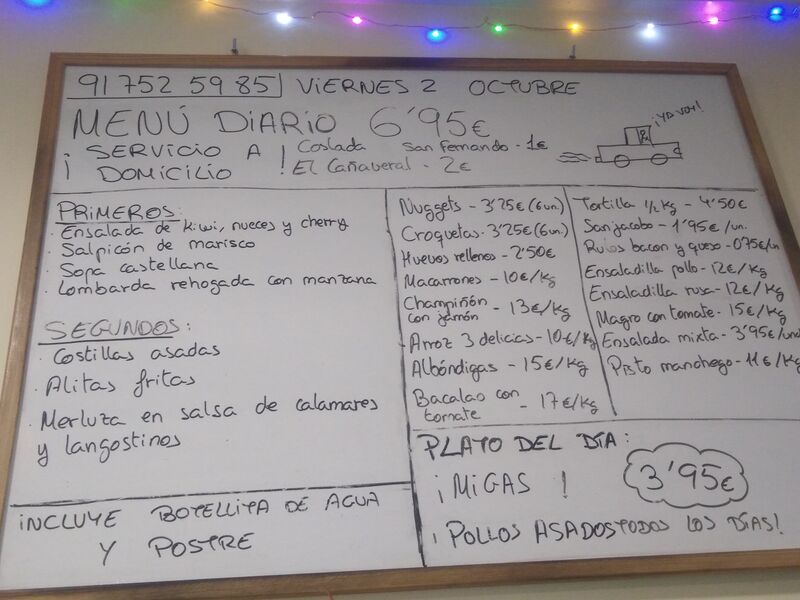 91 752 59 85 VIERNES 2 OCTUBRE
MENÚ DIARIO 6'95€
¡YA VOY!
¡ SERVICIO A
DOMICILIO !
Coslada San Fernando - 1€
El Cañaveral - 2€
PRIMEROS:
· Ensalada de kiwi, nueces y cherry
· Salpicón de marisco
· Sopa castellana
· Lombarda rehogada con manzana
SEGUNDOS:
· Costillas asadas
· Alitas fritas
· Merluza en salsa de calamares
y langostinos
INCLUYE BOTELLITA DE AGUA
Y POSTRE
Nuggets - 3'25€ (6un.)
Croquetas - 3'25€ (6un.)
Huevos rellenos - 2'50€
Macarrones - 10€/kg
Champiñón
con jamón - 13€/kg
Arroz 3 delicias - 10€/kg
Albóndigas - 15€/kg
Bacalao con
tomate - 17€/kg
Tortilla 1/2 kg - 4'50€
Sanjacobo - 1'95€/un.
Rulos bacon y queso - 0'75€/un
Ensaladilla pollo - 12€/kg
Ensaladilla rusa - 12€/kg
Magro con tomate - 15€/kg
Ensalada mixta - 3'95€/und
Pisto manchego - 11€/kg
PLATO DEL DÍA:
¡MIGAS! 3'95€
¡POLLOS ASADOS TODOS LOS DÍAS!